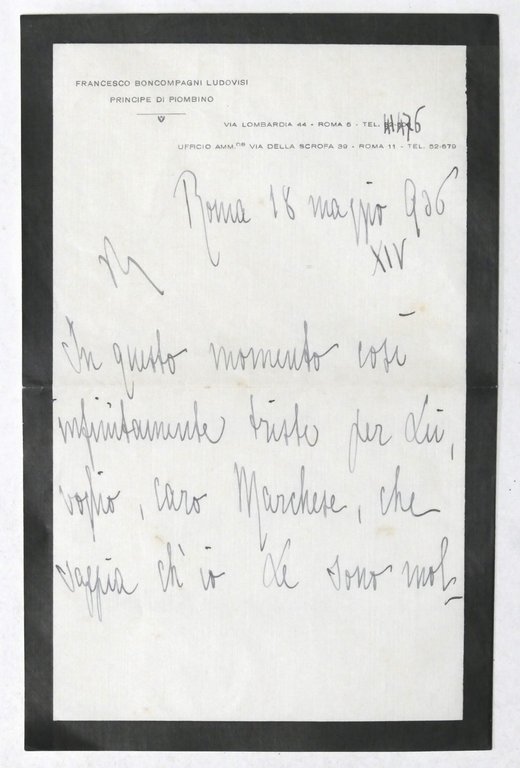 FRANCESCO BONCOMPAGNI LUDOVISI
PRINCIPE DI PIOMBINO
VIA LOMBARDIA 44 - ROMA 6 - TEL.
UFFICIO AMM.NE VIA DELLA SCROFA 39 - ROMA 11 - TEL. 52-679
Roma 18 maggio 936
XIV
In questo momento così
infinitamente triste per Lei,
voglio, caro Marchese, che
sappia ch'io Le sono mol-